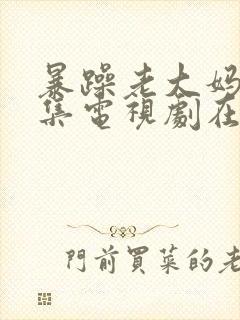 暴躁老太媽
集電視劇在
門前買菜的老